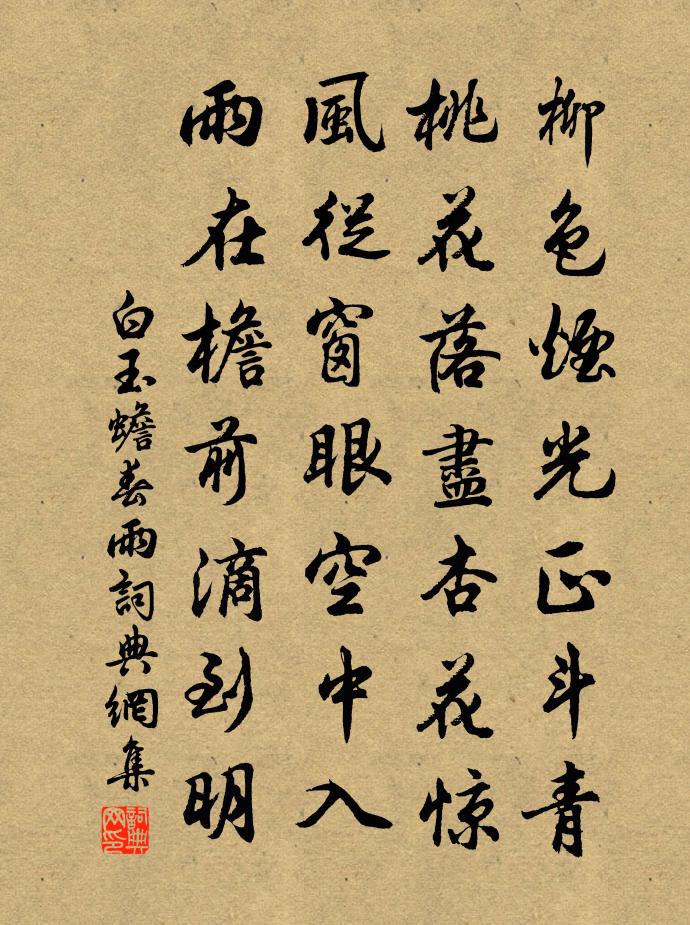 柳色煙光正斗青
桃花落盡杏花惊
風從窗眼空中入
雨在檐前滴到明
白玉蟾春雨詞典網集
詞典网印